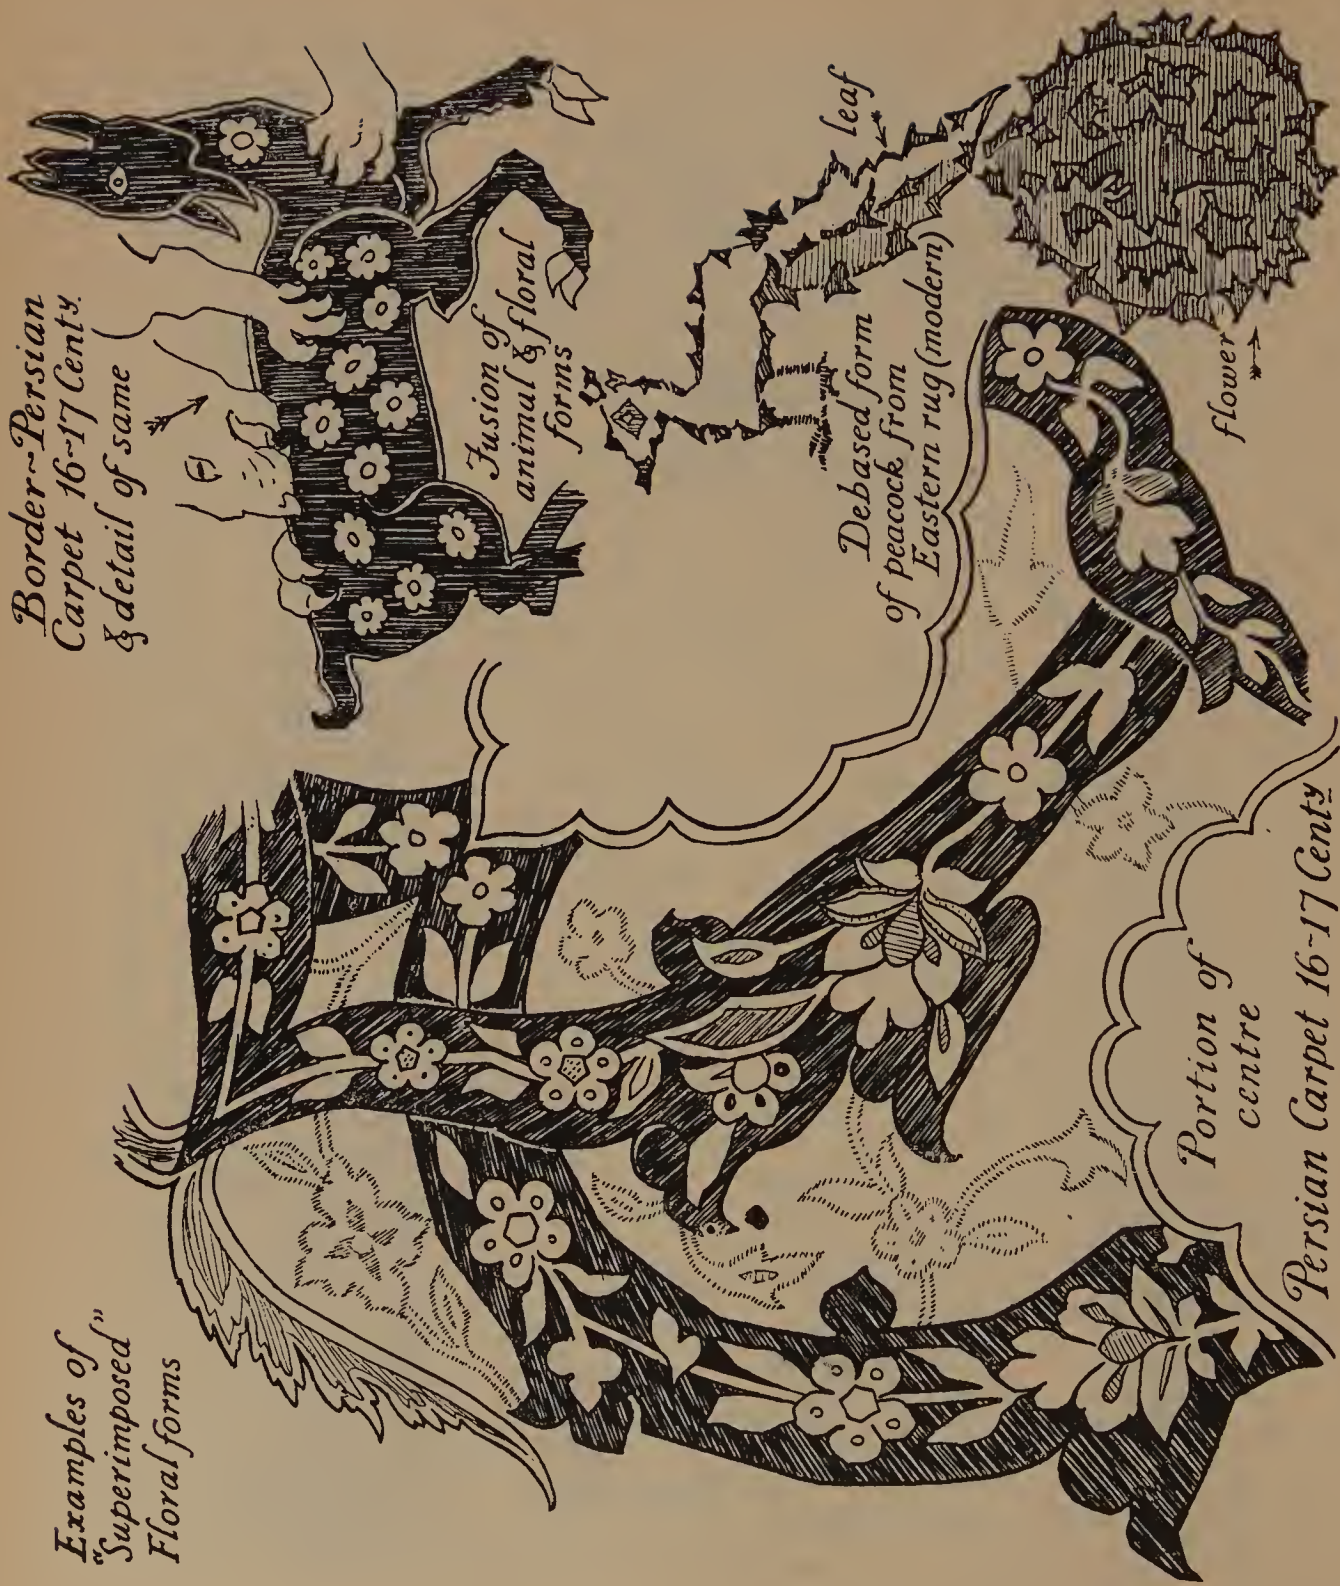 Examples of
"Superimposed"
Floral forms
Border~Persian
Carpet 16~17 Centy.
& detail of same
Fusion of
animal & floral
forms
Debased form
of peacock from
Eastern rug (modern)
leaf
flower
Portion of
centre
Persian Carpet 16~17 Centy